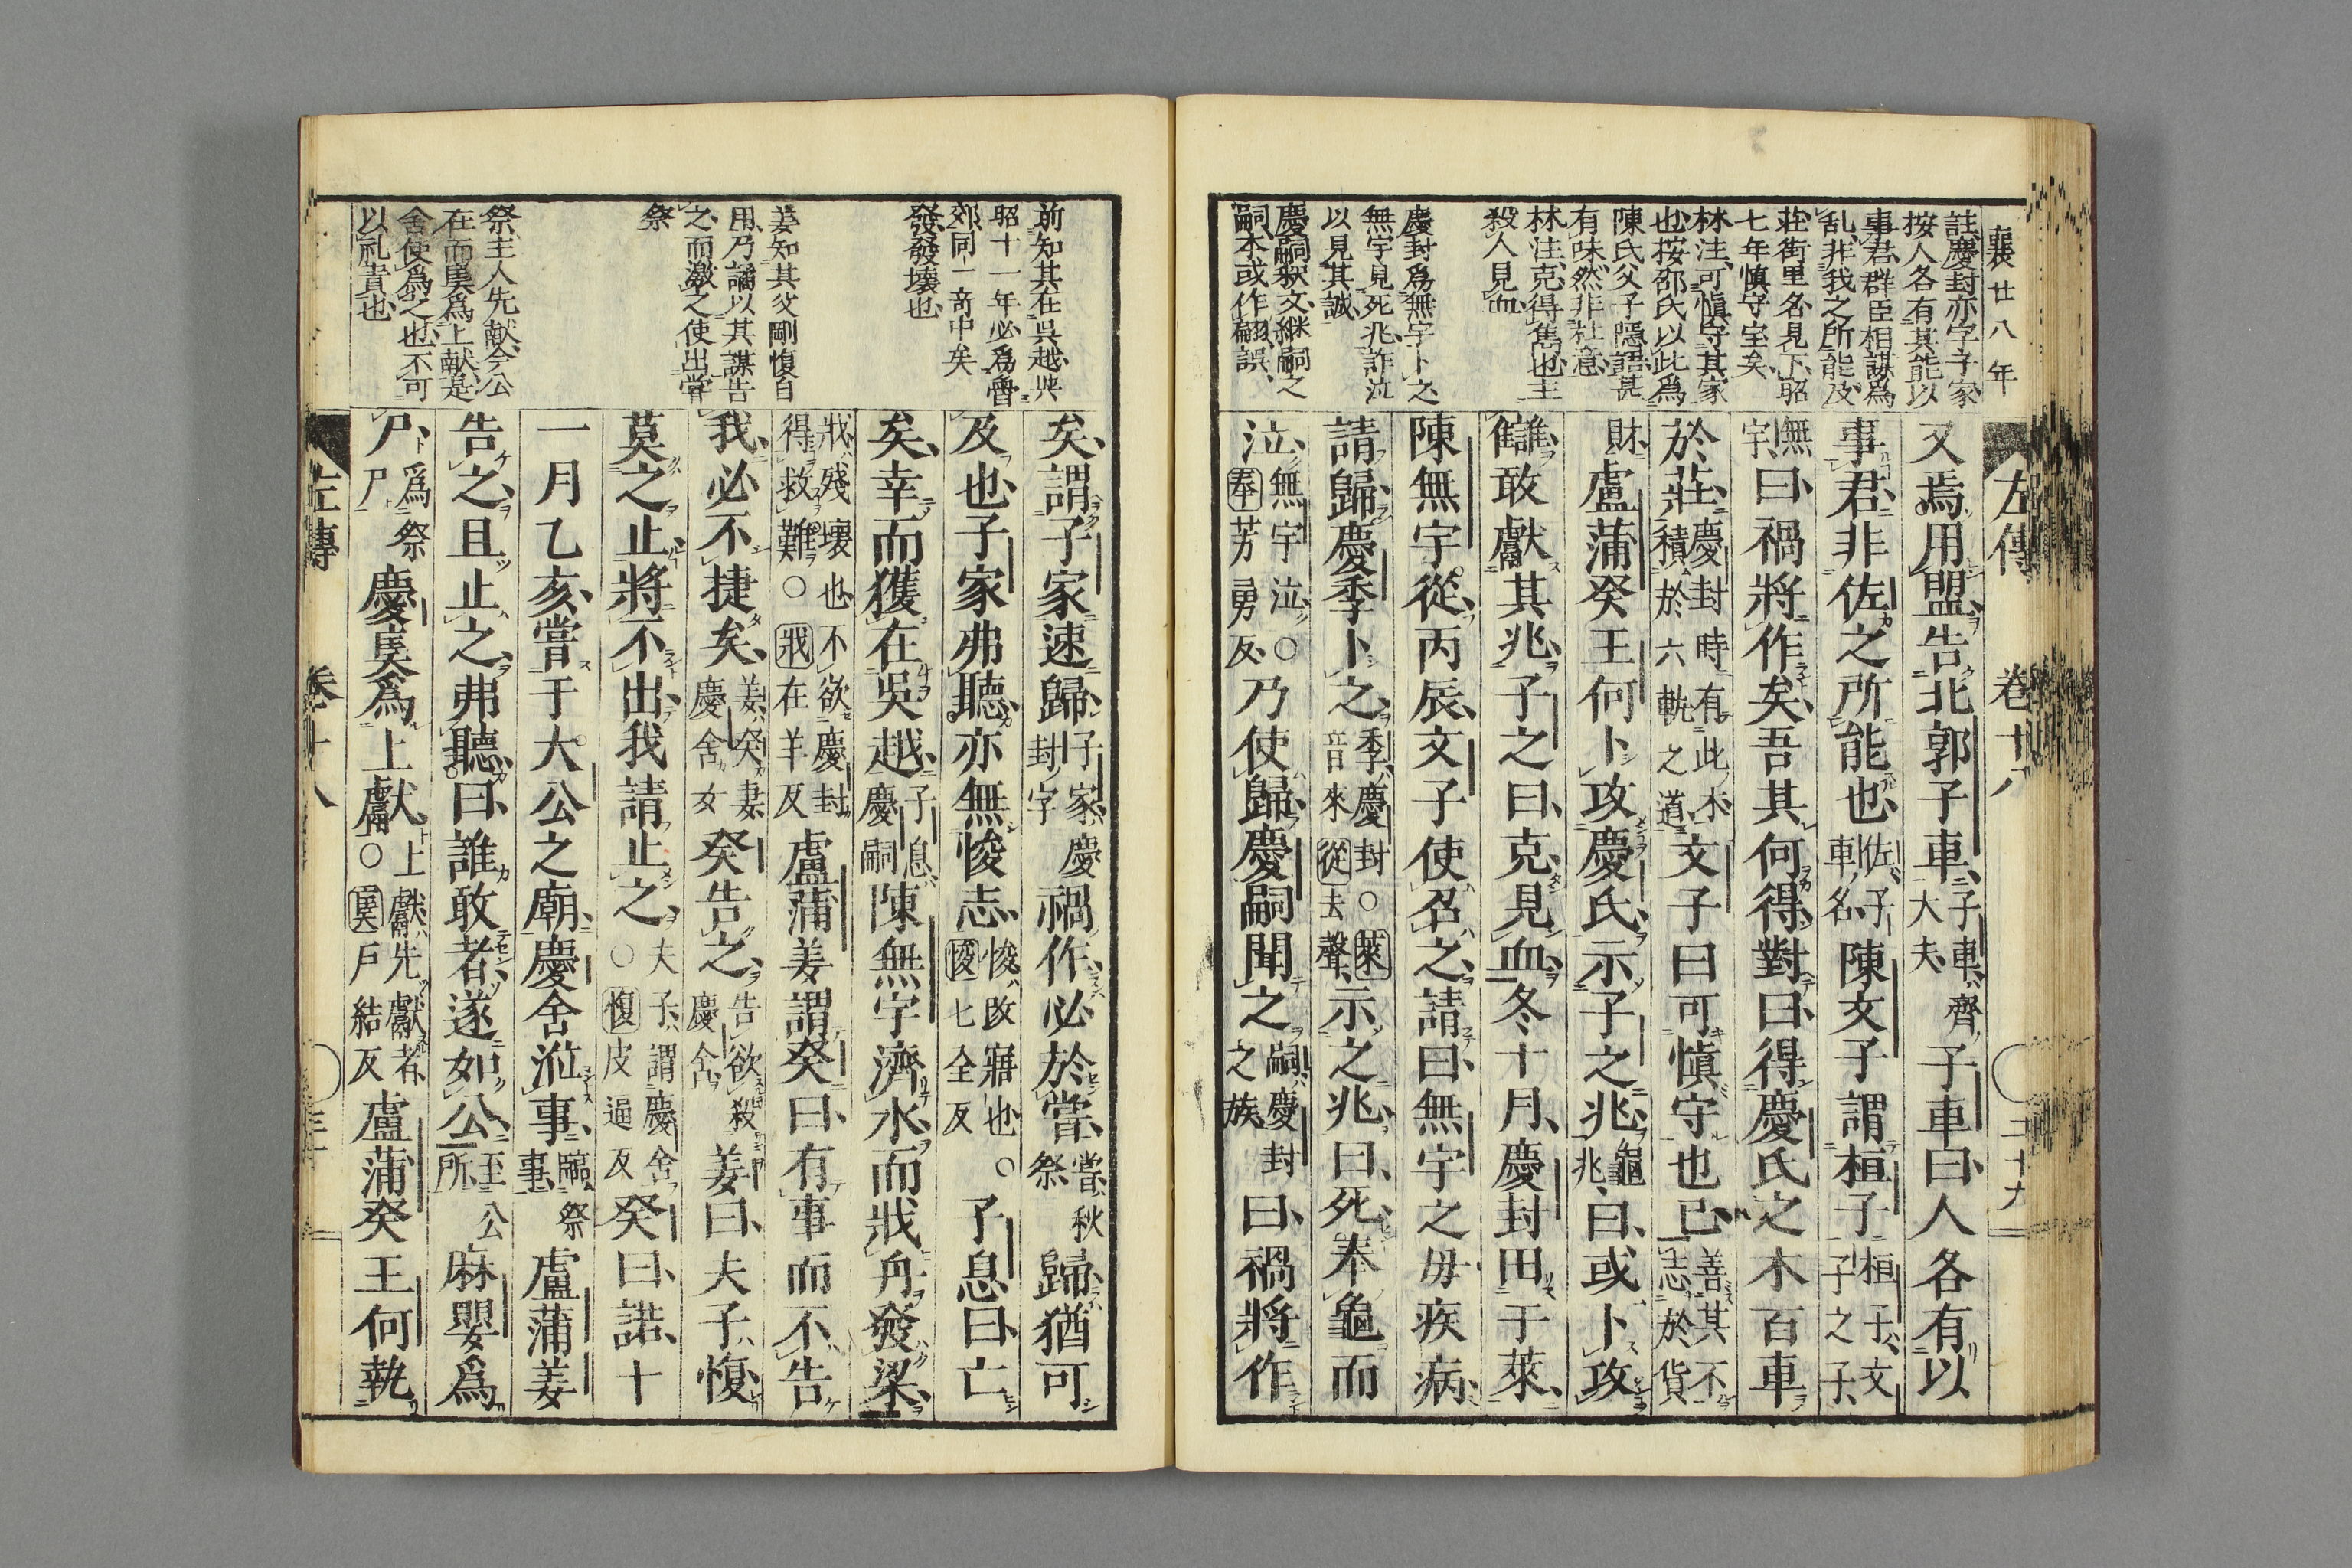 襄廿八年
左傳 卷十八 二十九
註慶封亦字子家
按人各有其能以
事君群臣相謀為
乱非我之所能及
莊街里名見下昭
七年慎守室矣
林注可慎守其家
也按邵氏以此為
陳氏父子隱語甚
有味然非杜意
林注克得雋也主
殺人見血
慶封為無宇卜之
無宇見死兆詐泣
以見其誠
慶嗣釈文継嗣之
嗣本或作翩誤
又焉用盟告北郭子車子車齊大夫子車曰人各有以
事君非佐之所能也佐子車名陳文子謂桓子桓子文子之子
無宇曰禍將作矣吾其何得對曰得慶氏之木百車
於莊慶封時有此木積於六軌之道文子曰可慎守也已善其不志於貨
財盧蒲癸王何卜攻慶氏示子之兆龜兆曰或卜攻
讎敢獻其兆子之曰克見血冬十月慶封田于萊
陳無宇從丙辰文子使召之請曰無宇之母疾病
請歸慶季卜之季慶封○萊音來從去聲示之兆曰死奉龜而
泣無宇泣○奉芳勇反乃使歸慶嗣聞之嗣慶封之族曰禍將作
前知其在呉越與
昭十一年必為魯
郊同一竒中矣
發發壊也
姜知其父剛愎自
用乃譎以其謀告
之而激之使出嘗
祭
祭主人先献今公
在而奊為上献是
舍使為之也不可
以礼責也
矣謂子家速歸子家慶封字禍作必於嘗嘗秋祭歸猶可
及也子家弗聽亦無悛志悛改寤也○悛七全反子息曰亡
矣幸而獲在吳越子息慶嗣陳無宇濟水而戕舟發梁
戕殘壞也不欲慶封得救難○戕在羊反盧蒲姜謂癸曰有事而不告
我必不捷矣姜癸妻慶舍女癸告之告欲殺慶舍姜曰夫子愎
莫之止將不出我請止之夫子謂慶舍○愎皮逼反癸曰諾十
一月乙亥嘗于大公之廟慶舍涖事臨祭事盧蒲姜
告之且止之弗聽曰誰敢者遂如公至公所麻嬰為
尸為祭尸慶奊為上獻上獻先獻者○奊戶結反盧蒲癸王何執
左傳 卷十八